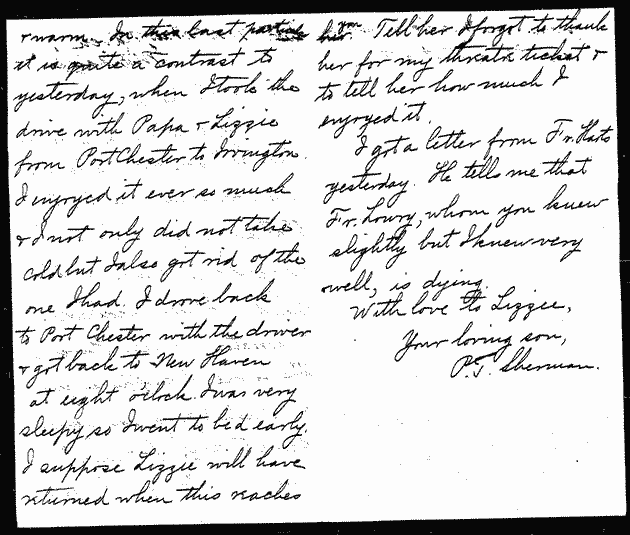 & warm. In this last particular
it is quite a contrast to
yesterday, when I took the
drive with Papa & Lizzie
from Port Chester to Irvington.
I enjoyed it ever so much
& I not only did not take
cold but I also got rid of the
one I had. I drove back
to Port Chester with the driver
& got back to New Haven
at eight o'clock. I was very
sleepy so I went to bed early.
I suppose Lizzie will have
returned when this reaches
you. Tell her I forgot to thank
her for my theatre ticket &
to tell her how much I
enjoyed it.
I got a letter from Fr.
yesterday. He tells me that
Fr. Lowry, whom you knew
slightly but I knew very
well, is dying.
With love to Lizzie,
Your loving son,
P.T. Sherman.